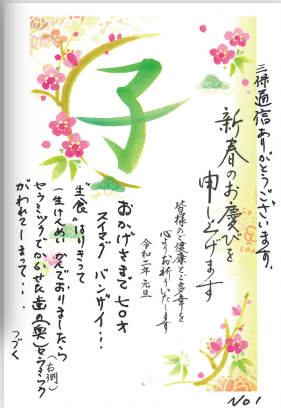 三保通信ありがとうございます。
新春のお慶びを
申し上げます
皆様のご健康とご多幸を
心よりお祈りいたします
令和二年 元旦
子
おかげさまで七〇才
スイマグ バンザイ…
生食はりきって
一生けんめいかんでおりましたら
(右側)
セラミックでかぶせた歯の(奥)セラミック
がわれてしまって…
つづく
No 1